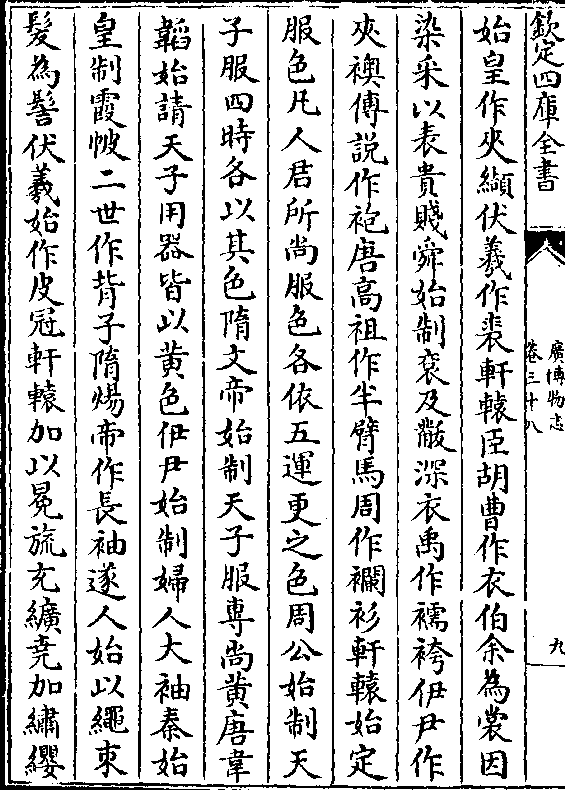 欽定四庫全書
廣博物志
卷三十八
九
始皇作夾纈伏羲作裘軒轅臣胡曹作衣伯余為裳因
染采以表貴賤舜始制袞及黻深衣禹作襦袴伊尹作
夾襖傅說作袍唐高祖作半臂馬周作襴衫軒轅始定
服色凡人君所尚服色各依五運更之色周公始制天
子服四時各以其色隋文帝始制天子服專尚黃唐韋
韜始請天子用器皆以黃色伊尹始制婦人大袖秦始
皇制霞帔二世作背子隋煬帝作長袖遂人始以繩束
髮為髻伏羲始作皮冠軒轅加以冕旒充纊堯加繡纓